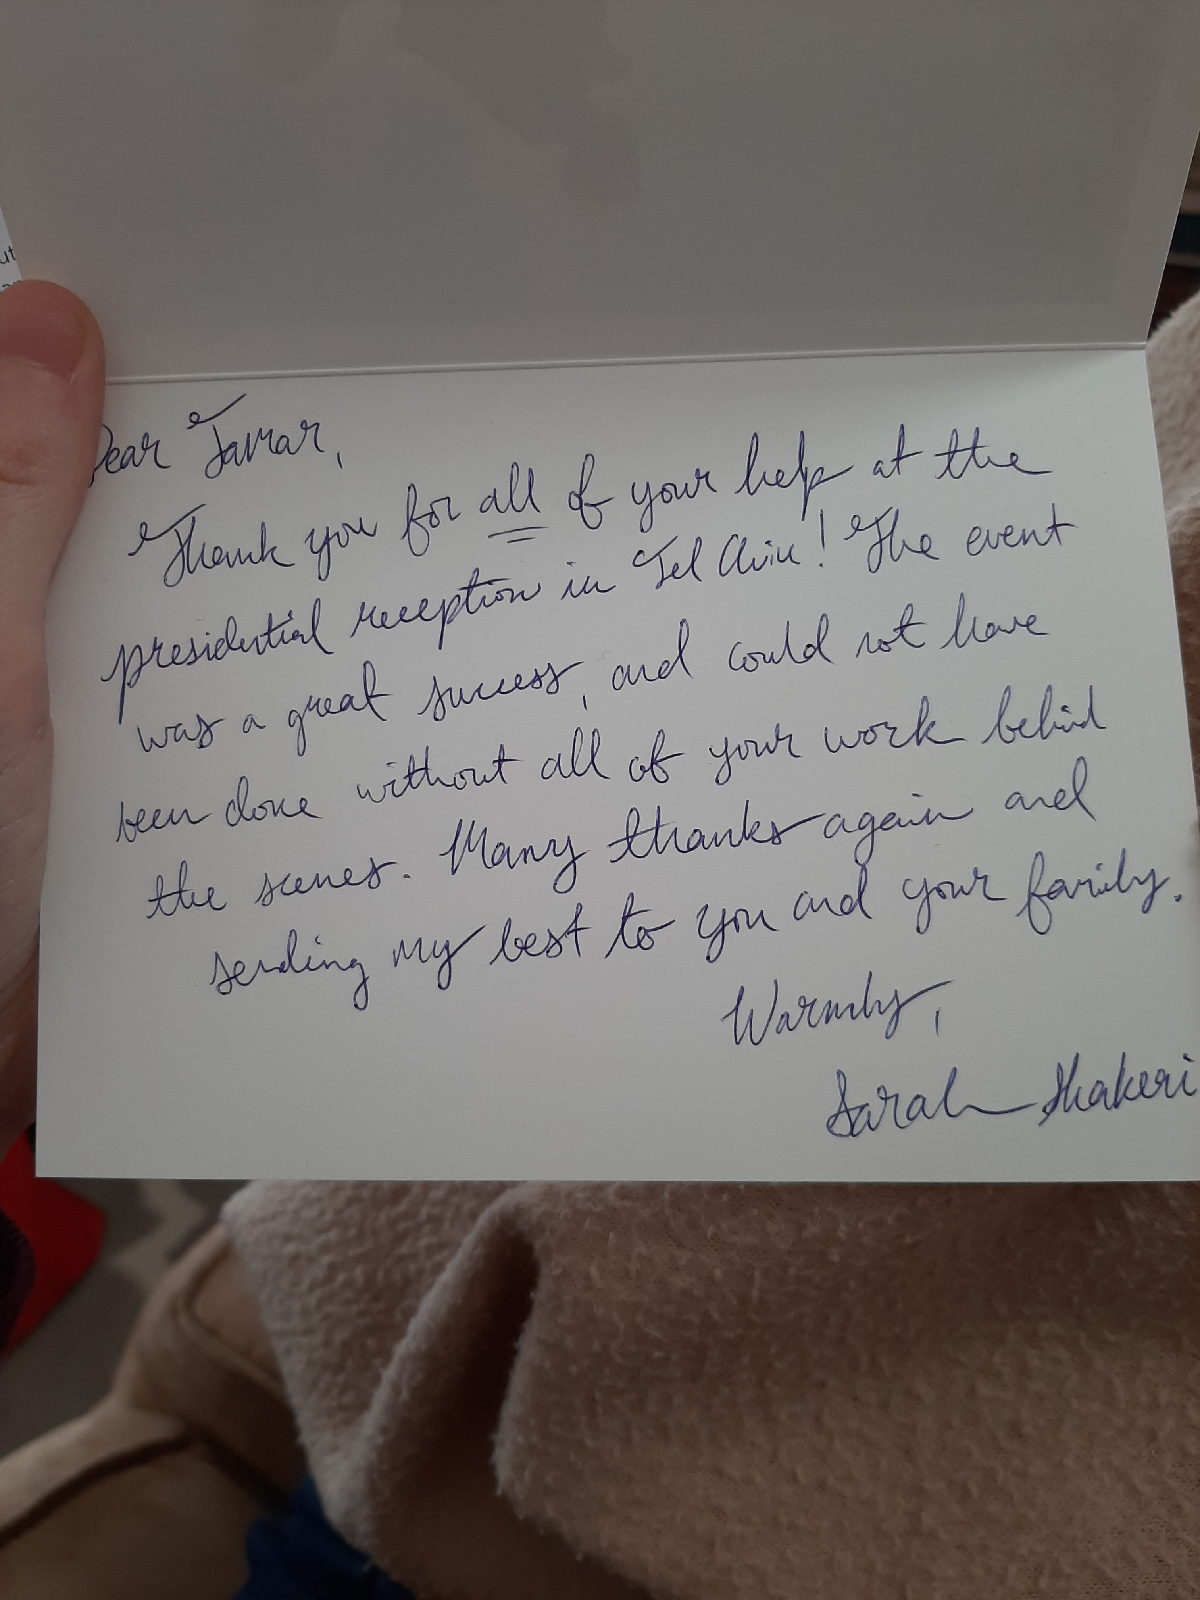 ut
Dear Tamar,
Thank you for all of your help at the
presidential reception in Tel Aviv! The event
was a great success, and could not have
been done without all of your work behind
the scenes. Many thanks again and
sending my best to you and your family.
Warmly,
Sarah Shakeri